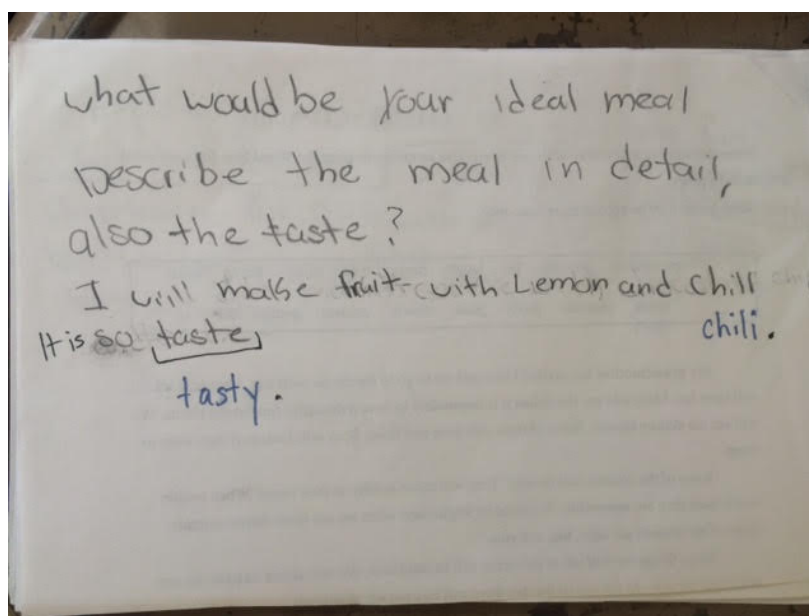 what would be your ideal meal
Describe the meal in detail,
also the taste?
I will make fruit with Lemon and chill
It is so taste
chili.
tasty.